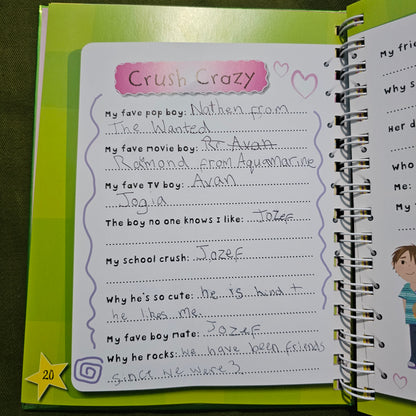 Crush Crazy
My fave pop boy: Nathen from
The Wanted
My fave movie boy: Rr Avan
Raimond from Aquamarine
My fave TV boy: Avan
Jogia
The boy no one knows I like: Jozef
My school crush: Jozef
Why he's so cute: he is kind +
he likes me.
My fave boy mate: Jozef
Why he rocks: we have been friends
since we were 3
20
My frie
Why s
Her d
Who
Me:
My